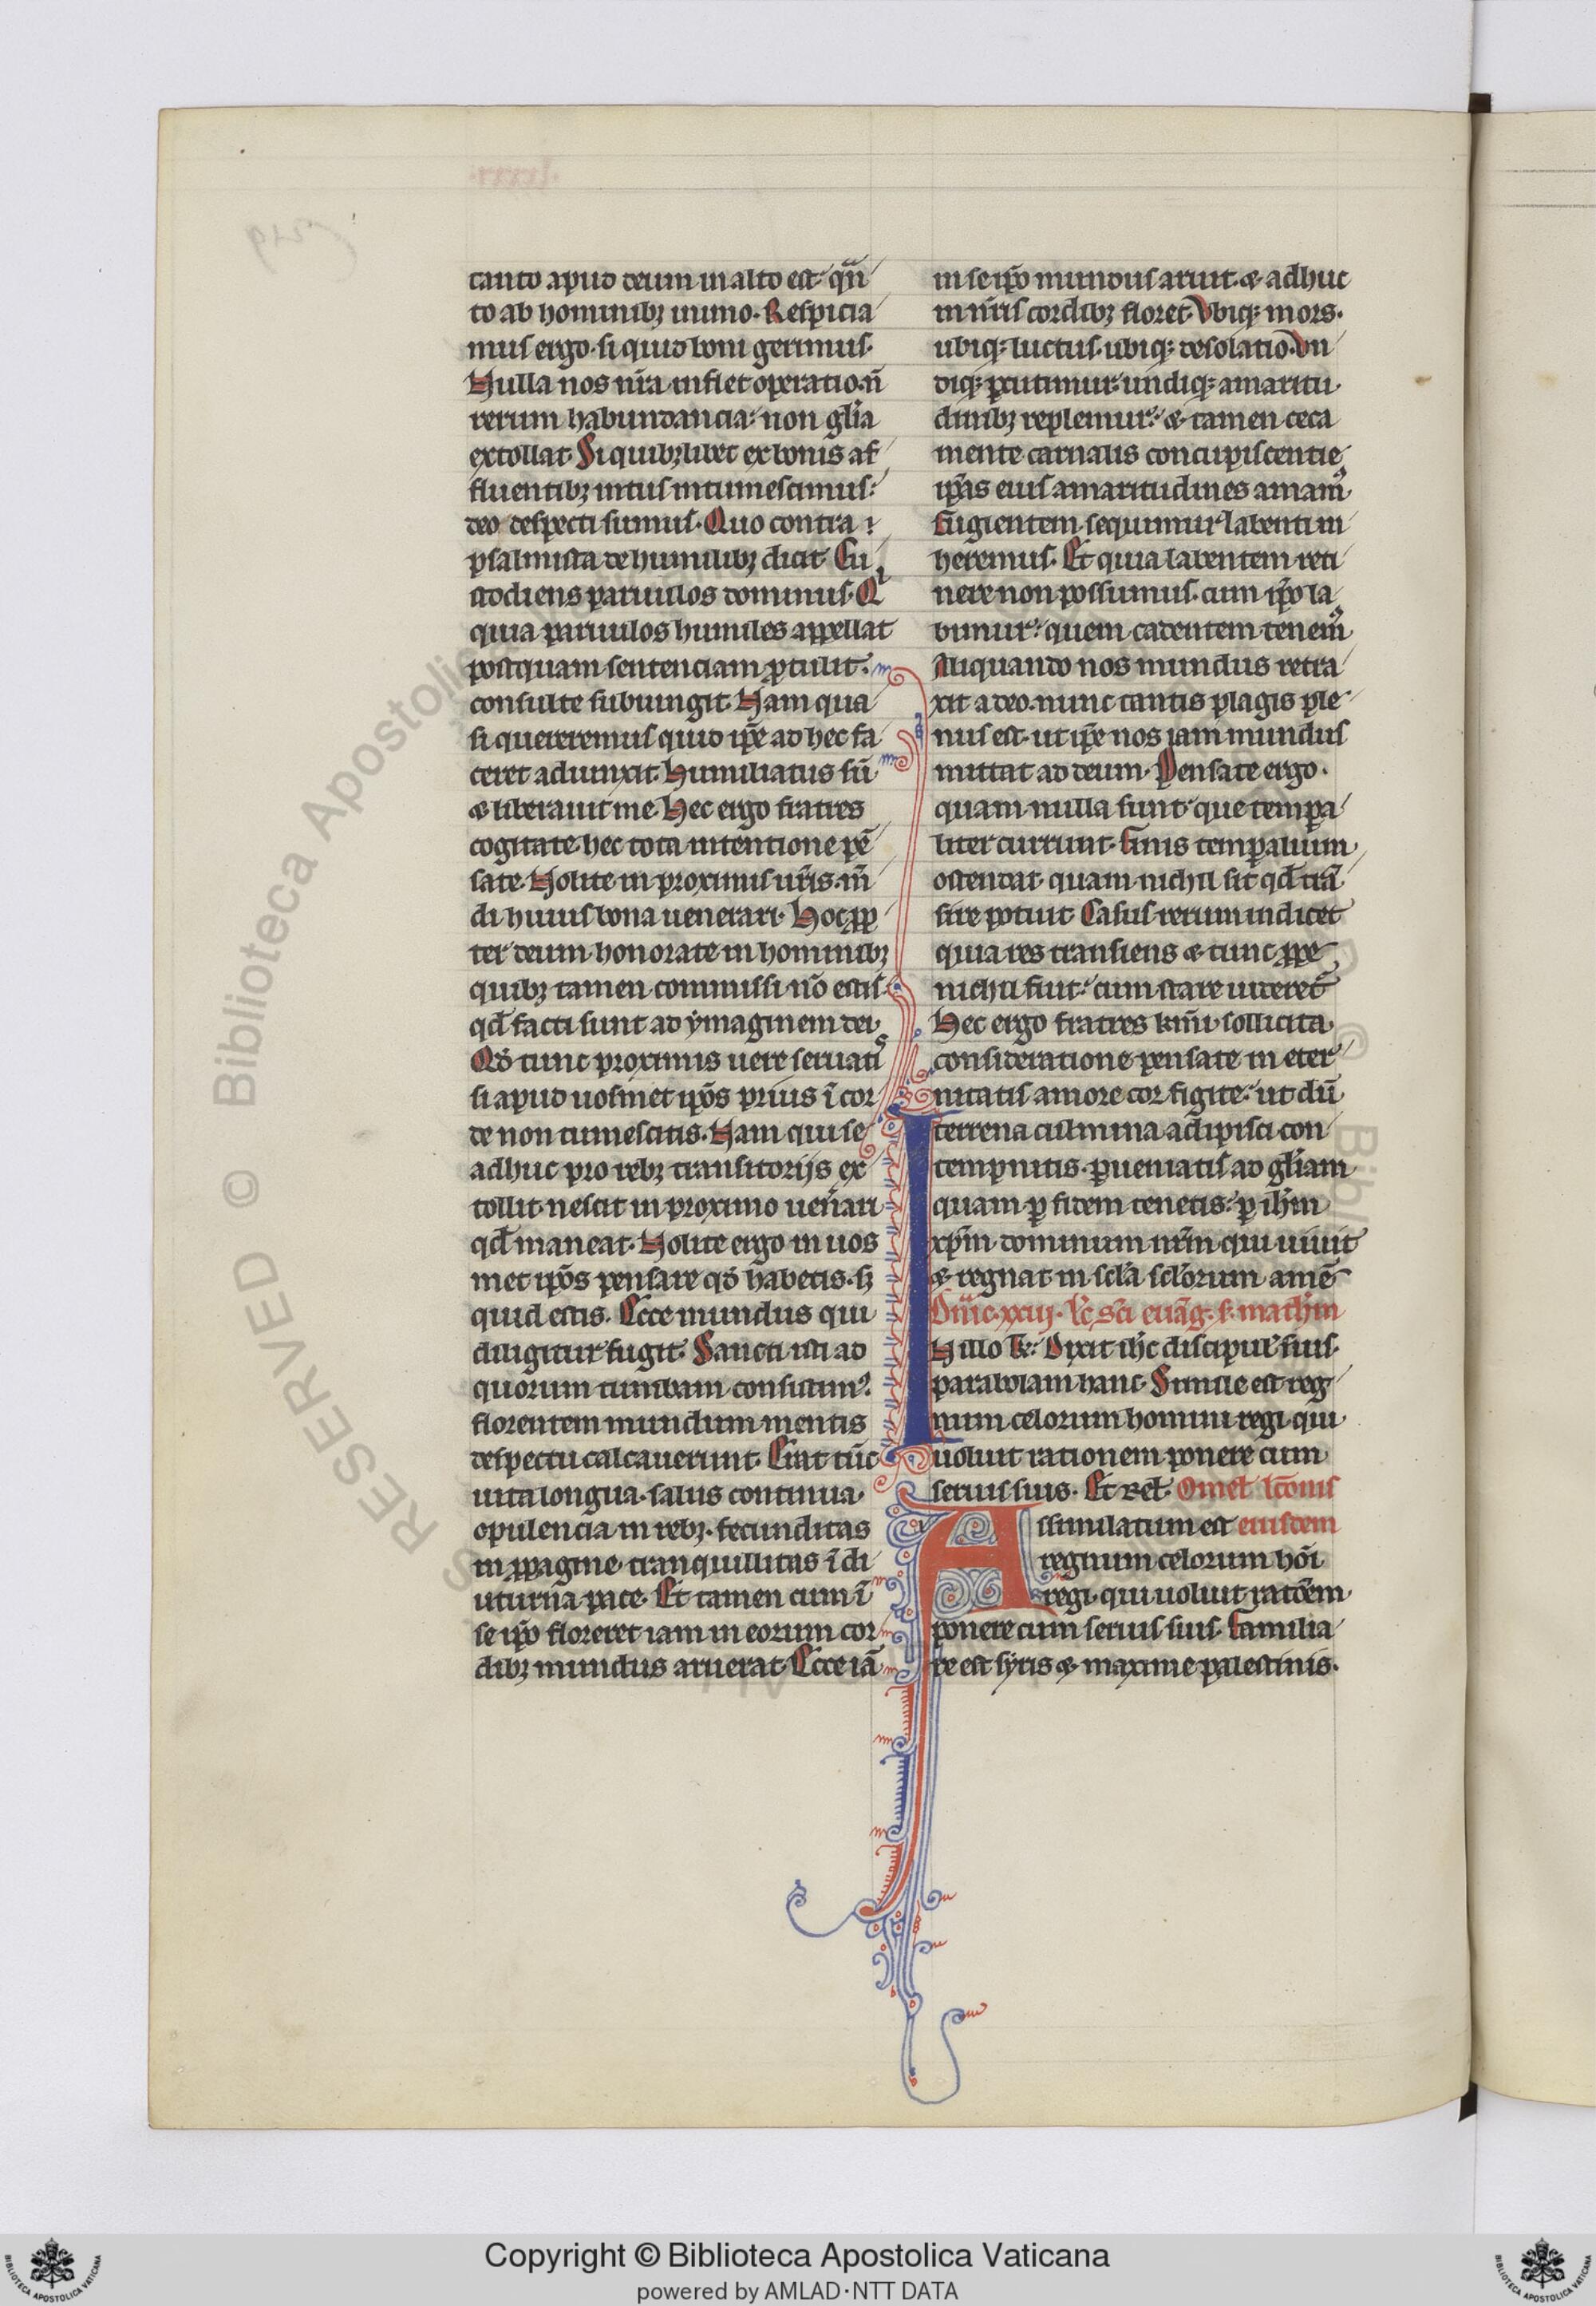 tanto apud deum in alto est qūn
to ab hominibꝫ immo. Respicia
mus ergo. si quid boni gerimus.
Nulla nos nr̄a infiet operatio. n̄
rerum habundancia: non gl̄ia
extollat. Si quibꝫlibet ex bonis af
fluentibꝫ intus intumescimus:
deo despecti sumus. Quo contra:
psalmista de humilibꝫ dicit. Cu
stodiens paruulos dominus. Q
quia paruulos humiles appellat
postquam sentenciam ꝓtulit.
consulte subiungit. Nam qua
si quereremus quid ip̄e ad hec fa
ceret adiunxit. Humiliatus sū
& liberauit me. Hec ergo fratres
cogitate hec tota intentione pē
sate. Nolite in proximis ur̄is. m̄
di huius bona uenerari. Hoc ꝓp
ter deum honorate in hominibꝫ
quibꝫ tamen commissi nō estis.
qd̄ facti sunt ad ymaginem dei.
Qd̄ tunc proximis uere seruatis
si apud uosmet ip̄os prius ī cor
de non tumescitis. Nam qui se
adhuc pro rebꝫ transitorijs ex
tollit. nescit in proximo uen̄ari
qd̄ maneat. Nolite ergo in uos
met ip̄os pensare qd̄ habetis. sꝫ
quid estis. Ecce mundus qui
diligitur fugit. Sancti isti ad
quorum tumbam consistimꝰ.
florentem mundum mentis
despectu calcauerunt. Erat tūc
uita longua. salus continua.
opulencia in rebꝫ. fecunditas
in ꝓpagine. tranquillitas ī di
uturna pace. Et tamen cum ī
se ip̄o floreret iam in eorum cor
dibꝫ mundus aruerat. Ecce iā
in se ip̄o mundus aruit. & adhuc
in nr̄is cordibꝫ floret. Vbiqꝫ mors.
ubiqꝫ luctus. ubiqꝫ desolatio. Vn
diqꝫ ꝑcutimur: undiqꝫ amaritu
dinibꝫ replemur: & tamen ceca
mente carnalis concupiscentie
ip̄as eius amaritudines amamꝰ.
Fugientem sequimur labenti in
heremus. Et quia labentem reti
nere non possumus. cum ip̄o la
bimur: quem cadentem tenemꝰ.
Aliquando nos mundus retra
xit a deo. nunc tantis plagis ple
nus est. ut ip̄e nos iam mundus
mittat ad deum. Pensate ergo.
quam nulla sunt. que tempa
liter currunt. Finis temꝑalium
ostendat. quam nichil sit qd̄ trā
sire potuit. Casus rerum indicet
quia res transiens & tunc ꝓpe
nichil fuit: cum stare uideretᷣ
Hec ergo fratres km̄i sollicita
consideratione pensate in eter
nitatis amore cor figite: ut dū
terrena culmina adipisci con
tempnitis. ꝑueniatis ad gl̄iam
quam ꝑ fidem tenetis: ꝑ ih̄m
xp̄m dominum nr̄m qui uiuit
& regnat in sc̄la sc̄lorum amē
Dn̄ic. xxiij. lc̄. sc̄i euāg. s. math̄m
IN illo t̄: Dixit ih̄c discipul̄ suis.
parabolam hanc. Simile est reg
num celorum homini regi qui
uoluit rationem ponere cum
seruis suis. Et rel̄. Omel̄ lc̄onis
Assimilatum est eiusdem
regnum celorum hōi
regi. qui uoluit ratōem
ponere cum seruis suis. Familia
re est syris & maxime palestinis.
Copyright © Biblioteca Apostolica Vaticana
powered by AMLAD·NTT DATA